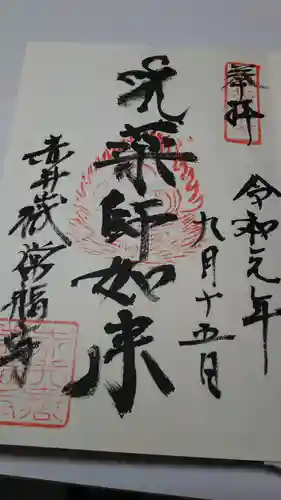 奉拝
令和元年
九月十五日
薬師如来
赤井嶽常福寺